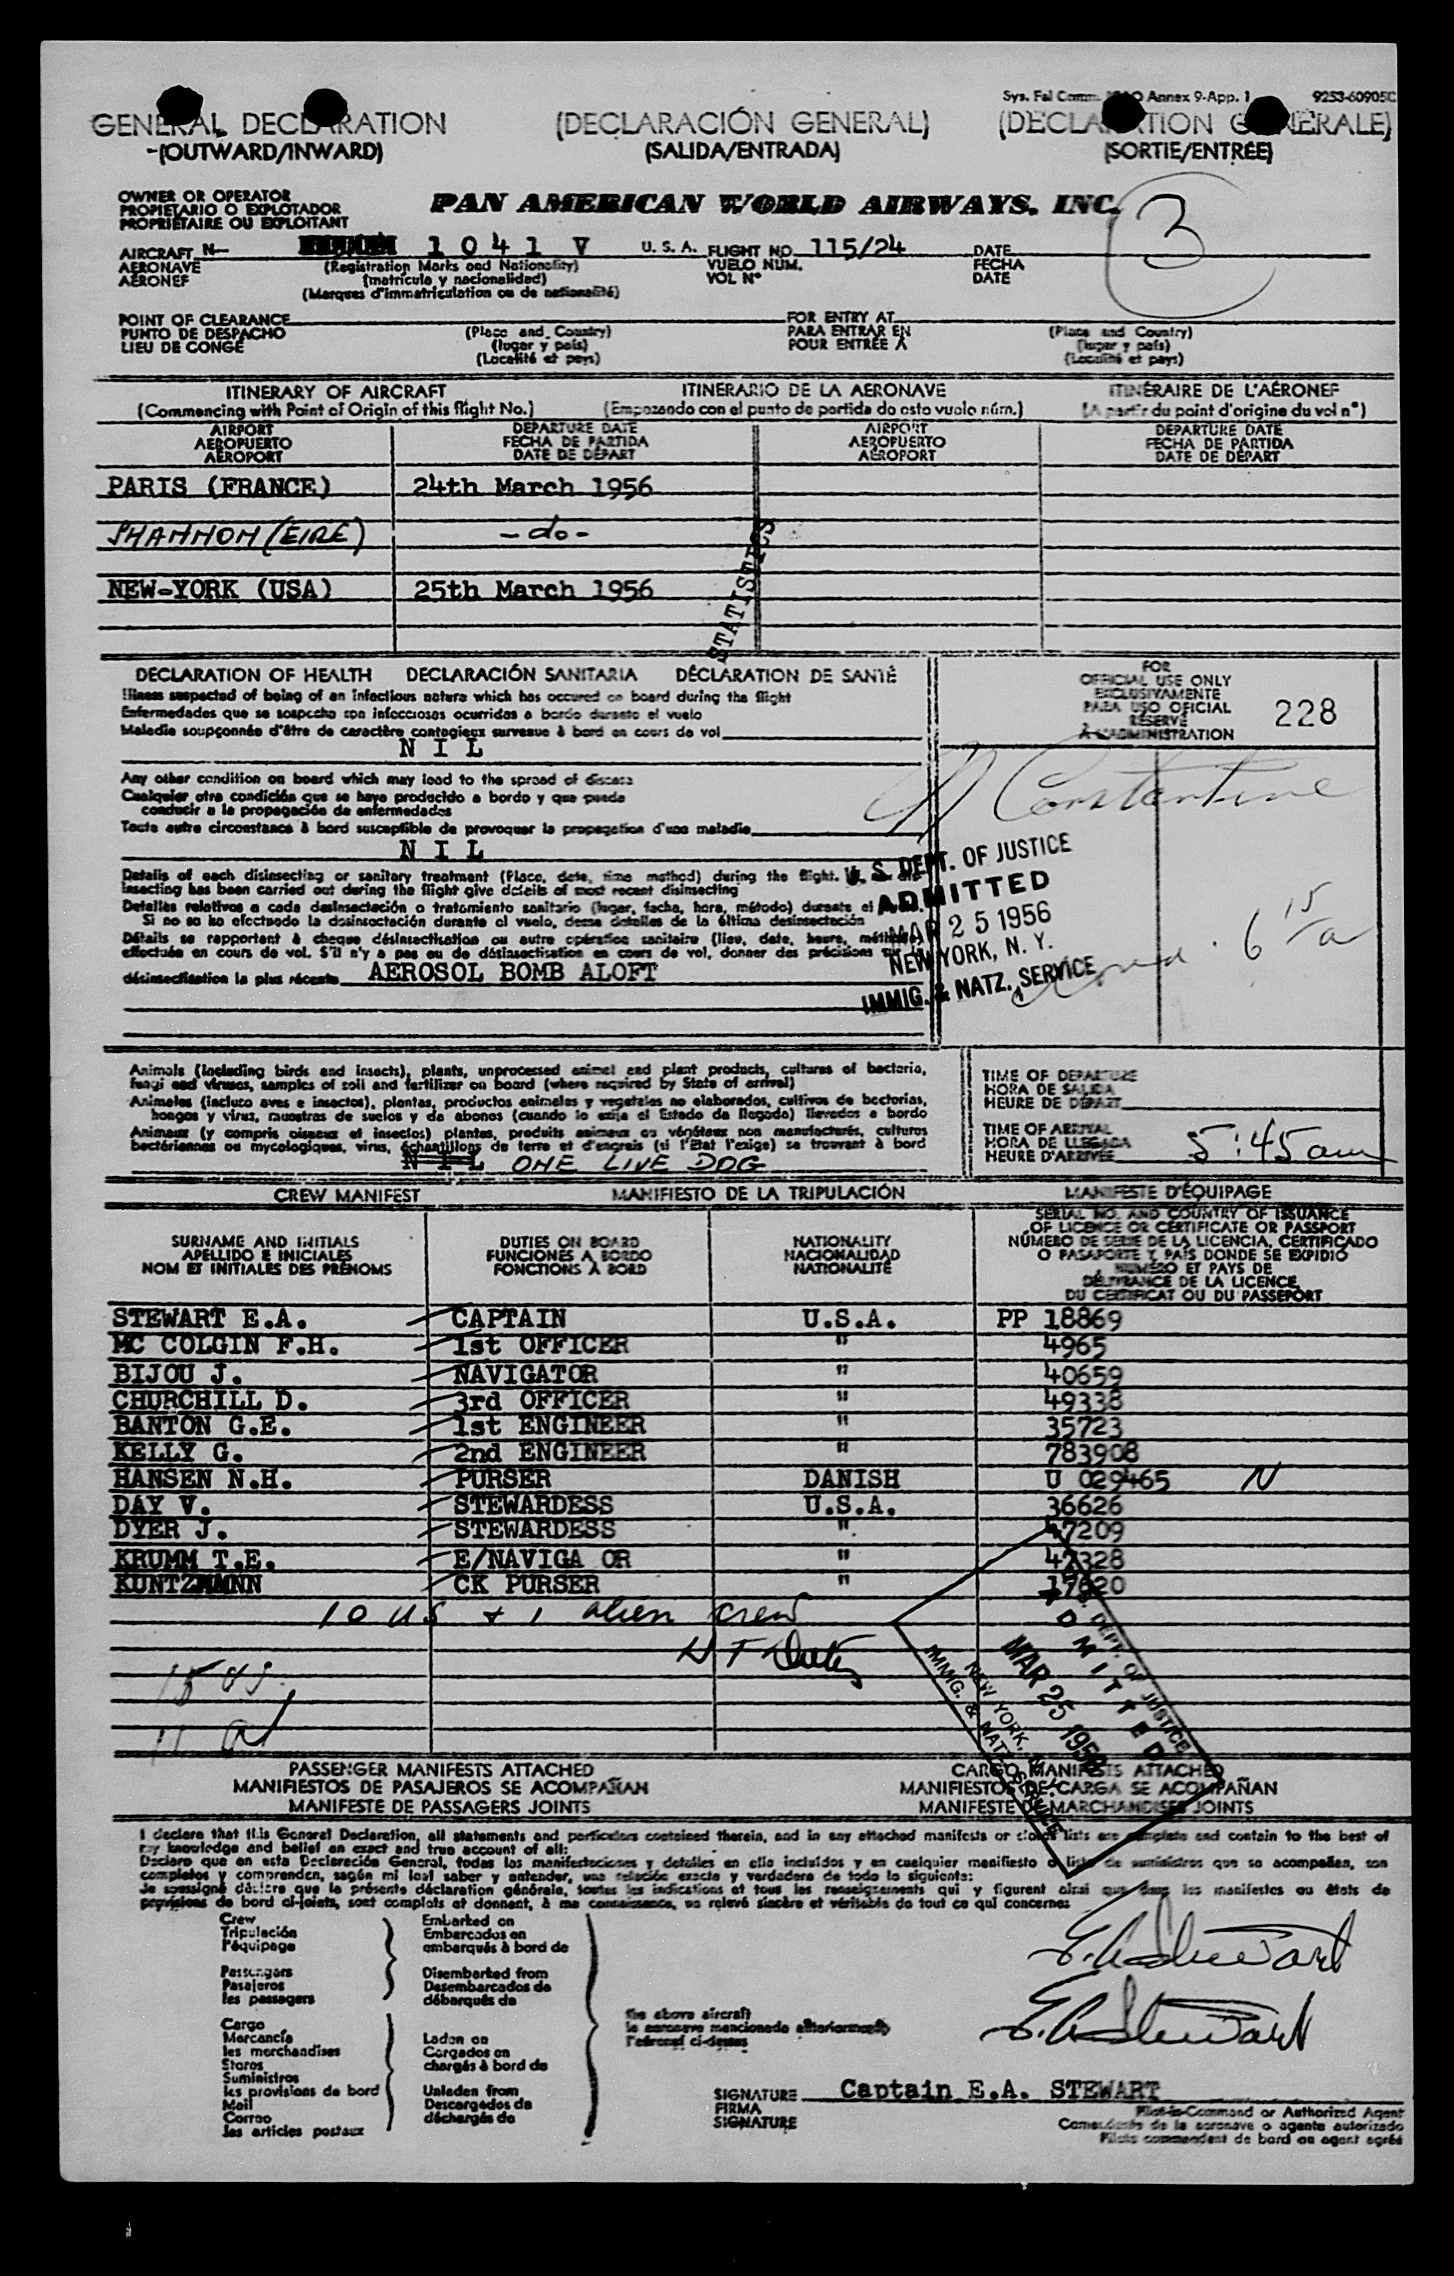 Sys. Fal Comm. Annex 9-App. 1 9253-60905C
GENERAL DECLARATION (DECLARACIÓN GENERAL) (DECLARATION GÉNÉRALE)
(OUTWARD/INWARD) (SALIDA/ENTRADA) (SORTIE/ENTRÉE)
OWNER OR OPERATOR
PROPIETARIO O EXPLOTADOR
PROPRIÉTAIRE OU EXPLOITANT
PAN AMERICAN WORLD AIRWAYS, INC.
3
AIRCRAFT N- 1 0 4 1 V U. S. A. FLIGHT NO. 115/24 DATE
AERONAVE (Registration Marks and Nationality) VUELO NUM. FECHA
AÉRONEF (matricula y nacionalidad) VOL N° DATE
(Marques d'immatriculation ou de nationalité)
POINT OF CLEARANCE FOR ENTRY AT
PUNTO DE DESPACHO (Place and Country) PARA ENTRAR EN (Place and Country)
LIEU DE CONGÉ (lugar y país) POUR ENTRÉE À (lugar y país)
(Localité et pays) (Localité et pays)
ITINERARY OF AIRCRAFT ITINERARIO DE LA AERONAVE ITINÉRAIRE DE L'AÉRONEF
(Commencing with Point of Origin of this flight No.) (Empezando con el punto de partida de este vuelo núm.) (A partir du point d'origine du vol n°)
AIRPORT DEPARTURE DATE AIRPORT DEPARTURE DATE
AEROPUERTO FECHA DE PARTIDA AEROPUERTO FECHA DE PARTIDA
AÉROPORT DATE DE DÉPART AÉROPORT DATE DE DÉPART
PARIS (FRANCE) 24th March 1956
SHANNON (EIRE) - do -
NEW-YORK (USA) 25th March 1956
STATISTICS
DECLARATION OF HEALTH DECLARACIÓN SANITARIA DÉCLARATION DE SANTÉ
Illness suspected of being of an infectious nature which has occured on board during the flight
Enfermedades que se sospecha son infecciosas ocurridas a bordo durante el vuelo
Maladie soupçonnée d'être de caractère contagieux survenue à bord en cours de vol
N I L
FOR
OFFICIAL USE ONLY
EXCLUSIVAMENTE
PARA USO OFICIAL
RÉSERVÉ
À L'ADMINISTRATION
228
Any other condition on board which may lead to the spread of disease
Cualquier otra condición que se haya producido a bordo y que pueda
conducir a la propagación de enfermedades
Toute autre circonstance à bord susceptible de provoquer la propagation d'une maladie
N I L
Constantine
Details of each disinsecting or sanitary treatment (Place, date, time method) during the flight.
insecting has been carried out during the flight give details of most recent disinsecting
Detalles relativos a cada desinsectación o tratamiento sanitario (lugar, fecha, hora, método) durante el
Si no se ha efectuado la desinsectación durante el vuelo, dense detalles de la última desinsectación
Détails se rapportant à chaque désinsectisation ou autre opération sanitaire (lieu, date, heure, méthode)
effectuée en cours de vol. S'il n'y a pas eu de désinsectisation en cours de vol, donner des précisions sur la
désinsectisation la plus récente AEROSOL BOMB ALOFT
U. S. DEPT. OF JUSTICE
ADMITTED
MAR 25 1956
NEW YORK, N. Y.
IMMIG. & NATZ. SERVICE
6 15/a
Animals (including birds and insects), plants, unprocessed animal and plant products, cultures of bacteria,
fungi and viruses, samples of soil and fertilizer on board (where required by State of arrival)
Animales (incluso aves e insectos), plantas, productos animales y vegetales no elaborados, cultivos de bacterias,
hongos y virus, muestras de suelos y de abonos (cuando lo exija el Estado de llegada) llevados a bordo
Animaux (y compris oiseaux et insectes) plantes, produits animaux ou végétaux non manufacturés, cultures
bactériennes ou mycologiques, virus, échantillons de terre et d'engrais (si l'Etat l'exige) se trouvant à bord
N I L ONE LIVE DOG
TIME OF DEPARTURE
HORA DE SALIDA
HEURE DE DÉPART
TIME OF ARRIVAL
HORA DE LLEGADA
HEURE D'ARRIVÉE 5:45 am
CREW MANIFEST MANIFIESTO DE LA TRIPULACIÓN MANIFESTE D'ÉQUIPAGE
SURNAME AND INITIALS
APELLIDO E INICIALES
NOM ET INITIALES DES PRÉNOMS
DUTIES ON BOARD
FUNCIONES A BORDO
FONCTIONS À BORD
NATIONALITY
NACIONALIDAD
NATIONALITÉ
SERIAL NO. AND COUNTRY OF ISSUANCE
OF LICENCE OR CERTIFICATE OR PASSPORT
NÚMERO DE SERIE DE LA LICENCIA, CERTIFICADO
O PASAPORTE Y PAÍS DONDE SE EXPIDIÓ
NUMÉRO ET PAYS DE
DÉLIVRANCE DE LA LICENCE,
DU CERTIFICAT OU DU PASSEPORT
STEWART E.A. CAPTAIN U.S.A. PP 18869
MC COLGIN F.H. 1st OFFICER " 4965
BIJOU J. NAVIGATOR " 40659
CHURCHILL D. 3rd OFFICER " 49338
BANTON G.E. 1st ENGINEER " 35723
KELLY G. 2nd ENGINEER " 783908
HANSEN N.H. PURSER DANISH U 029465 N
DAY V. STEWARDESS U.S.A. 36626
DYER J. STEWARDESS " 47209
KRUMM T.E. E/NAVIGA OR " 47328
KUNTZMANN CK PURSER " 17620
10 US + 1 alien crew
U.S. DEPT. OF JUSTICE
ADMITTED
MAR 25 1956
NEW YORK, N.Y.
IMMIG. & NATZ. SERVICE
PASSENGER MANIFESTS ATTACHED CARGO MANIFESTS ATTACHED
MANIFIESTOS DE PASAJEROS SE ACOMPAÑAN MANIFIESTOS DE CARGA SE ACOMPAÑAN
MANIFESTE DE PASSAGERS JOINTS MANIFESTE DE MARCHANDISES JOINTS
I declare that this General Declaration, all statements and particulars contained therein, and in any attached manifests or stores lists are complete and contain to the best of
my knowledge and belief an exact and true account of all:
Declaro que en esta Declaración General, todas las manifestaciones y detalles en ella incluidos y en cualquier manifiesto o lista de suministros que se acompañan, son
completos y comprenden, según mi leal saber y entender, una relación exacta y verdadera de todo lo siguiente:
Je soussigné déclare que la présente déclaration générale, toutes les indications et tous les renseignements qui y figurent ainsi que dans les manifestes ou états de
provisions de bord ci-joints, sont complets et donnent, à ma connaissance, un relevé sincère et véritable de tout ce qui concerne:
Crew
Tripulación
l'équipage
Passengers
Pasajeros
les passagers
Cargo
Mercancía
les marchandises
Stores
Suministros
les provisions de bord
Mail
Correo
les articles postaux
Embarked on
Embarcados en
embarqués à bord de
Disembarked from
Desembarcados de
débarqués de
Laden on
Cargados en
chargés à bord de
Unladen from
Descargados de
déchargés de
the above aircraft
la aeronave mencionada anteriormente
l'aéronef ci-dessus
E.A. Stewart
E.A. Stewart
SIGNATURE Captain E.A. STEWART
FIRMA
SIGNATURE
Pilot-in-Command or Authorized Agent
Comandante de la aeronave o agente autorizado
Pilote commandant de bord ou agent agréé